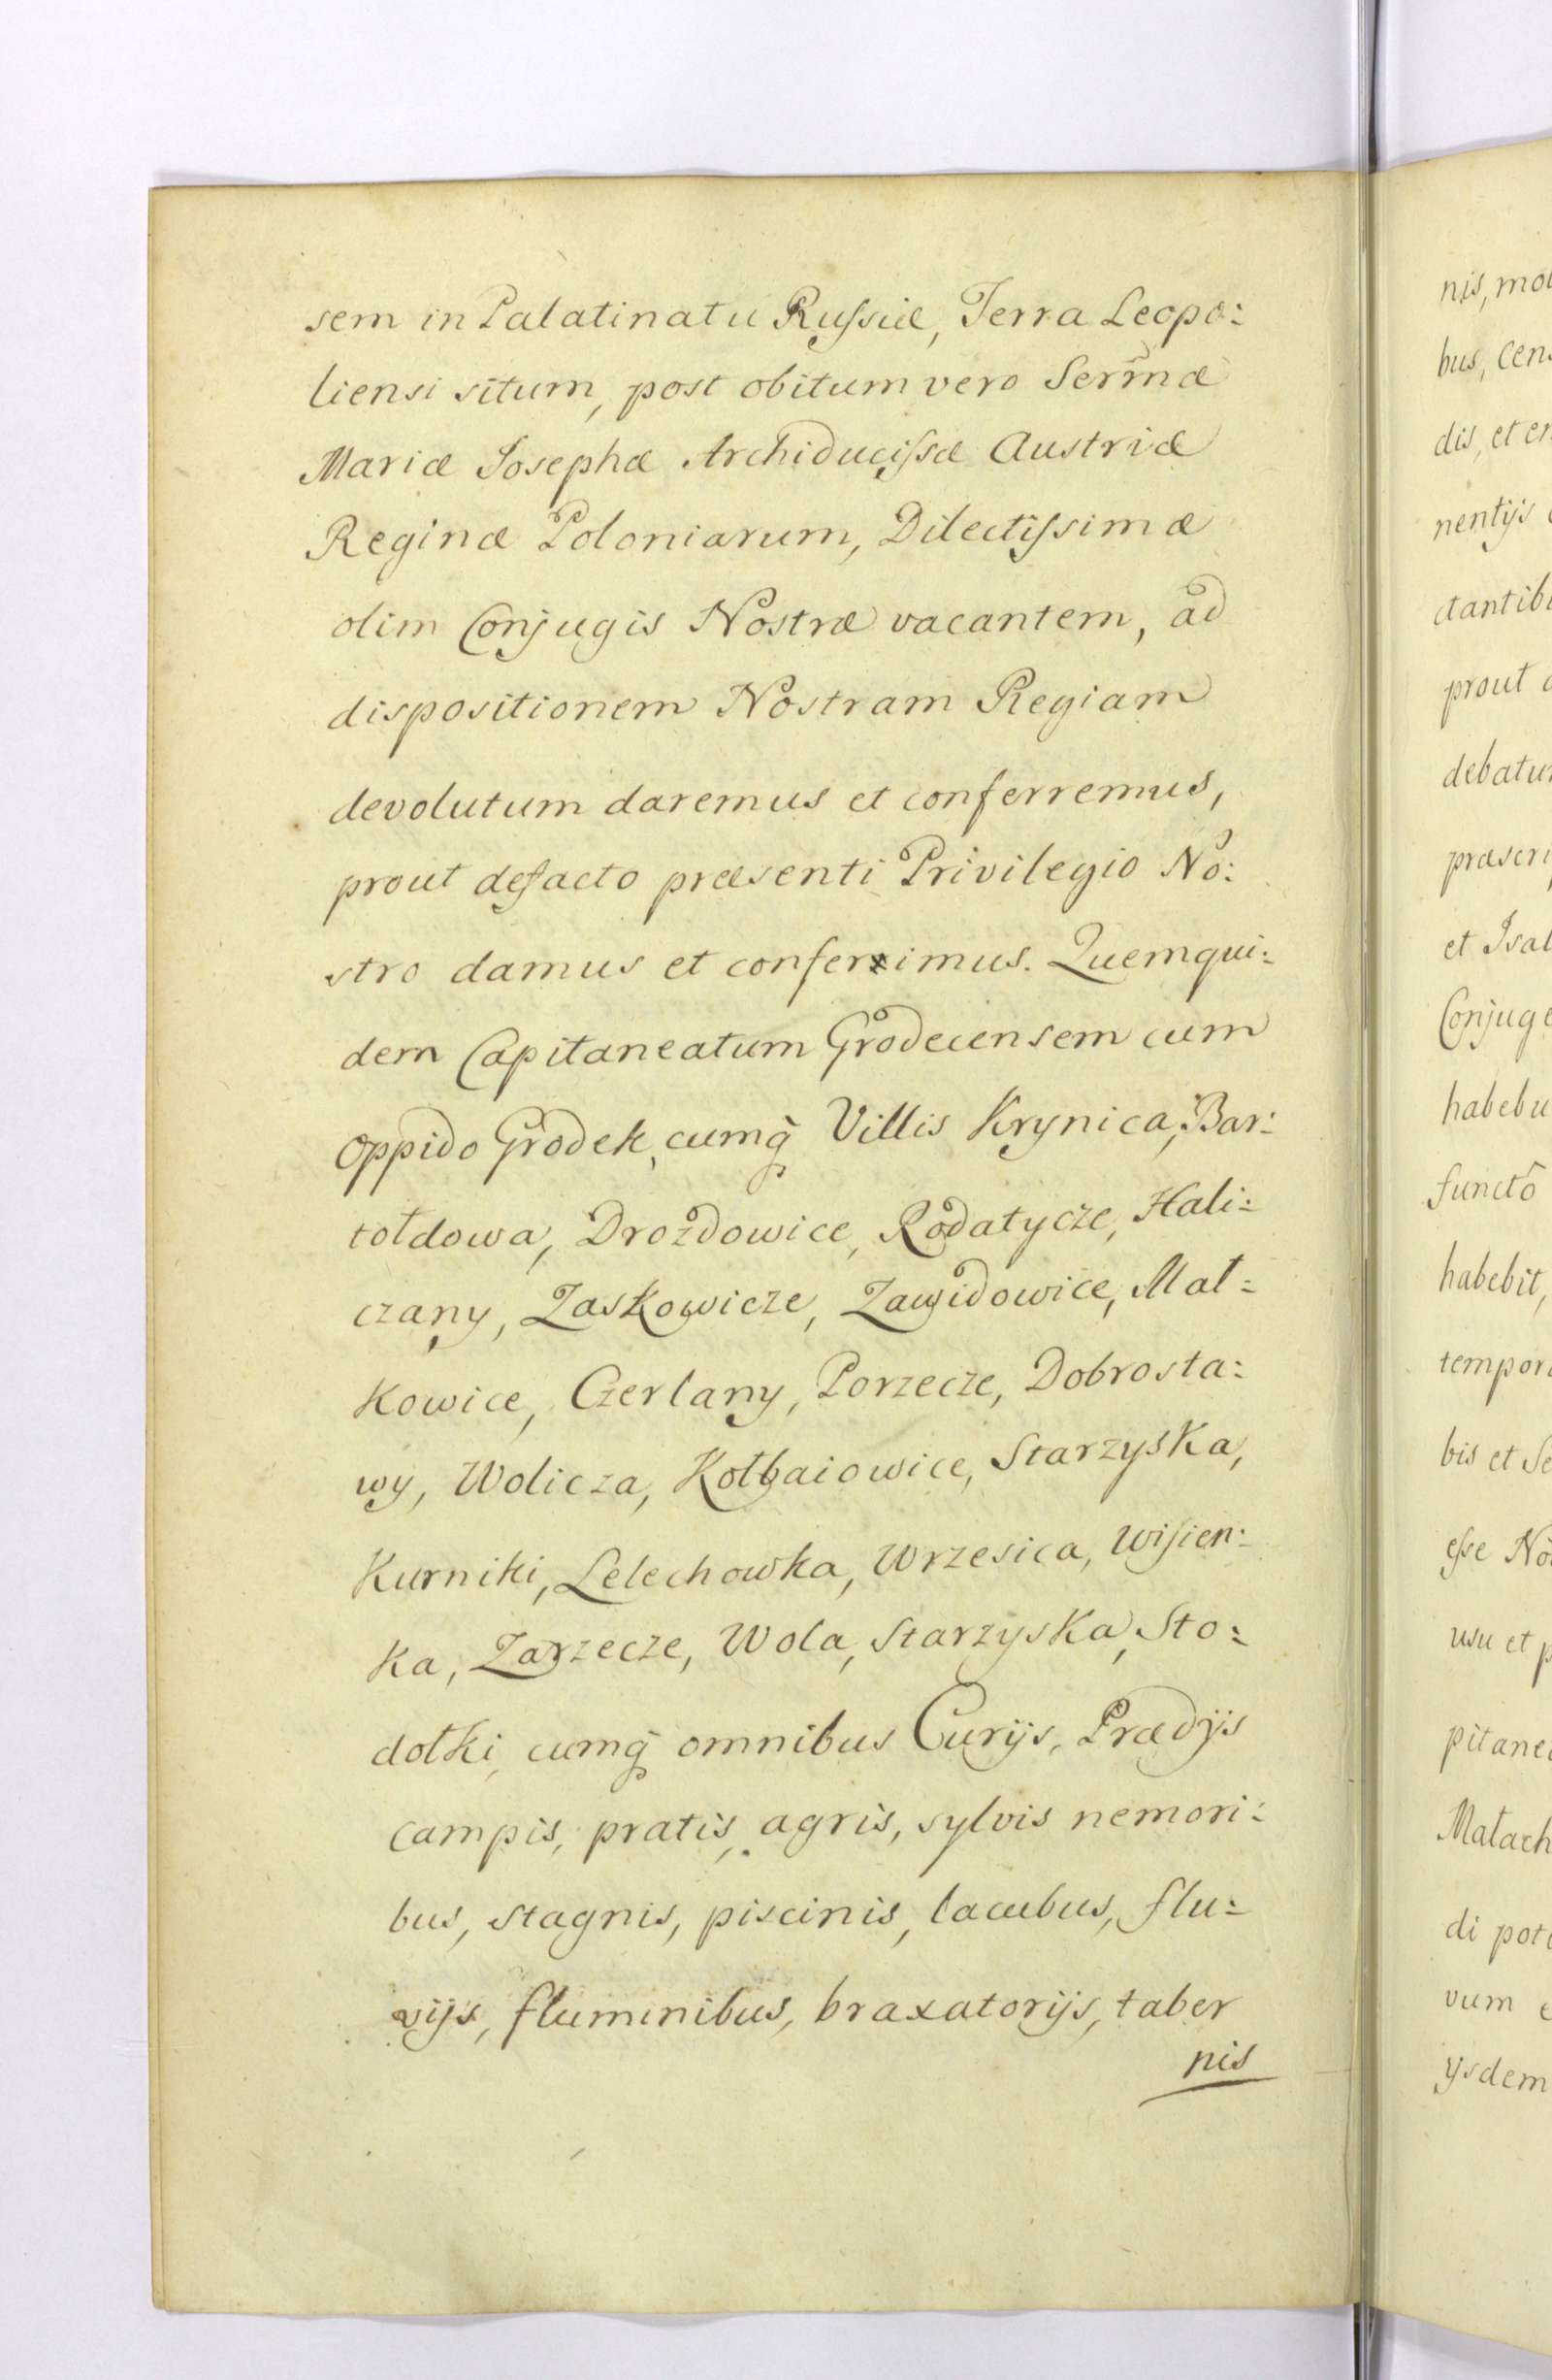 sem in Palatinatu Russiæ, Terra Leopo:
liensi situm, post obitum vero Serm̃æ
Mariæ Josephæ Archiducissæ Austriæ
Reginæ Poloniarum, Dilectissimæ
olim Conjugis Nostræ vacantem, ad
dispositionem Nostram Regiam
devolutum daremus et conferremus,
prout defacto præsenti Privilegio No:
stro damus et conferximus. Quemqui:
dem Capitaneatum Grodecensem cum
Oppido Grodek, cumq̃ Villis Krynica, Bar:
tołdowa, Drożdowice, Rodatycze, Hali:
czany, Zaskowicze, Zawidowice, Mał:
kowice, Czerlany, Porzecze, Dobrosta:
wy, Wolicza, Kołbaiowice, Starzyska,
Kurniki, Lelechowka, Wrzesica, Wisien:
ka, Zarzecze, Wola, Starzyska, Sto:
dołki, cumq̃ omnibus Curijs, Prædijs
campis, pratis, agris, sylvis nemori:
bus, stagnis, piscinis, lacubus, flu:
vijs, fluminibus, braxatorijs, taber
nis
nis, mol
bus, cen
dis, et em
nentijs
ctantib
prout
debatur
præscri
et Isab
Conjuge
habebu
functô
habebit,
tempor
bis et Se
esse No
usu et p
pitane
Małach
di pot
vum
ijsdem